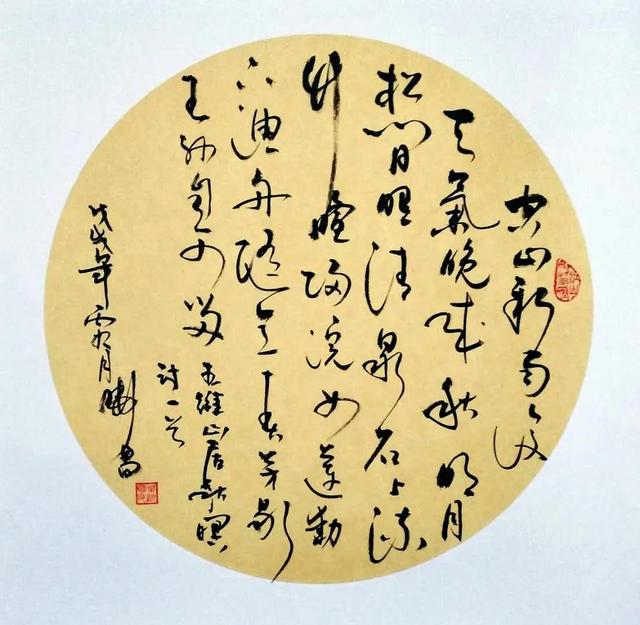 空山新雨後
天氣晚來秋明月
松間照清泉石上流
竹喧歸浣女蓮動
下漁舟隨意春芳歇
王孫自可留
王維山居秋暝
詩一首
戊戌年霜月書